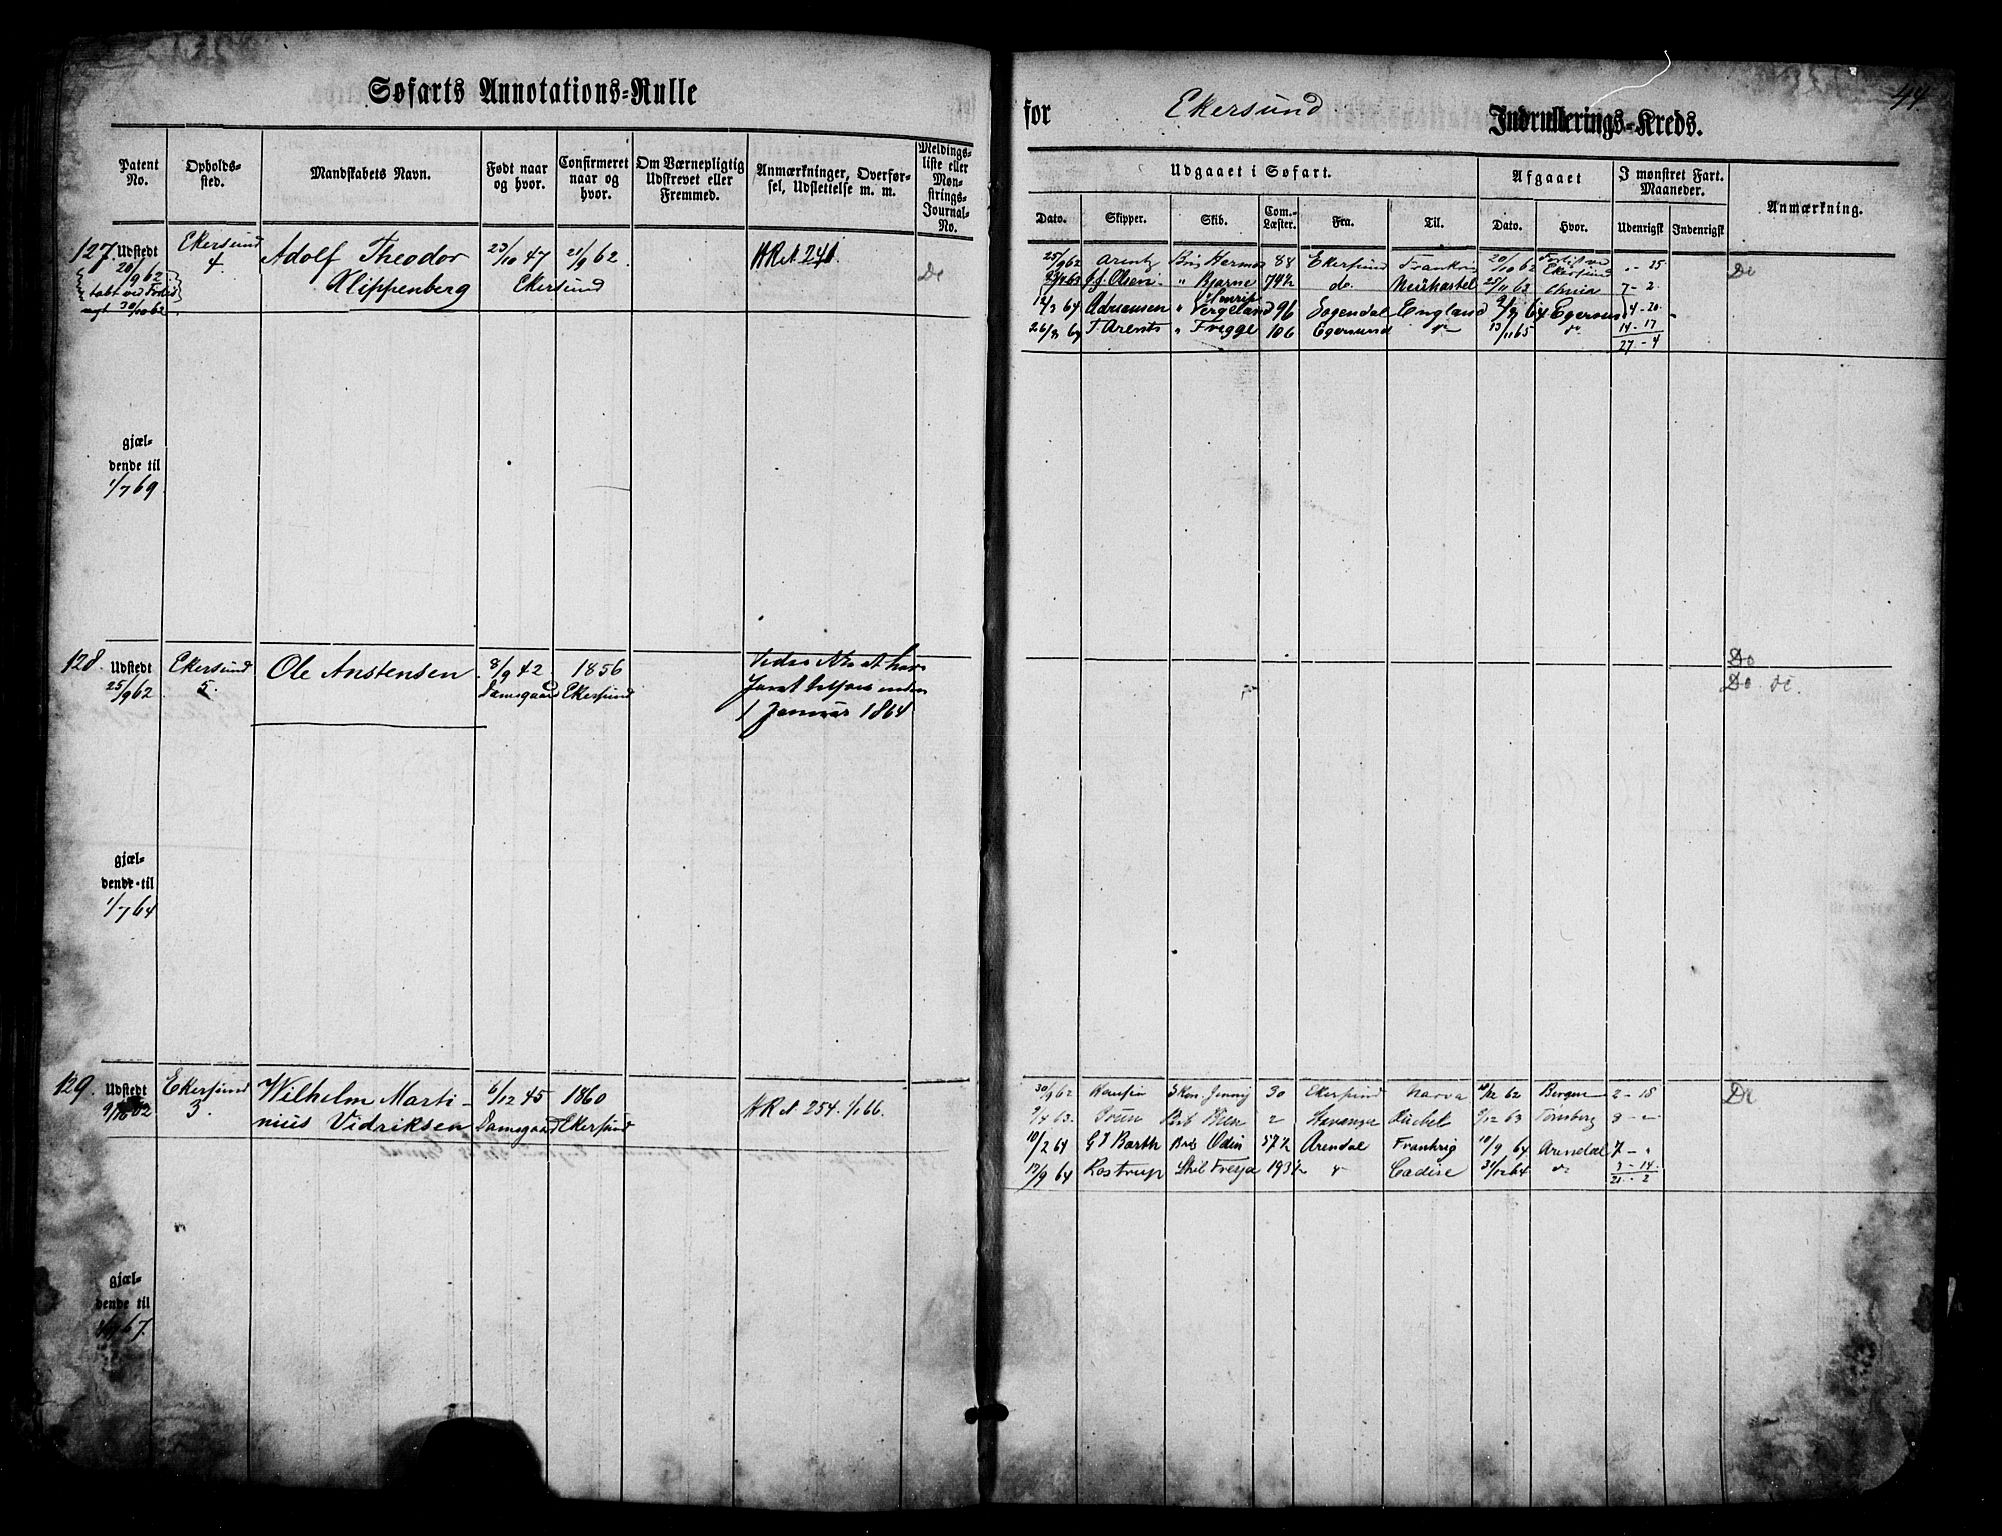 Søfarts Annotations=Rulle
for Ekersund Indrullerings=Kreds.
44
Patent No.
Opholds- sted.
Mandskabets Navn.
Født naar og hvor.
Confirmeret naar og hvor.
Om Værnepligtig Udskrevet eller Fremmed.
Anmærkninger, Overfør- sel, Udslettelse m. m.
Meldings- liste eller Møn- strings- Journal- No.
Udgaaet i Søfart.
Afgaaet
I mønstret Fart. Maaneder.
Anmærkning.
Dato. Skipper. Skib. Com.- Læster. Fra. Til. Dato. Hvor. Udenrigsk Indenrigsk
127. Udstedt 20/9 62
tabt ved Forlis
nyt 30/10 62
Ekersund 4.
Adolf Theodor
Klippenberg
23/10 47
Ekersund
21/9 62
HR. A. 241.
Do
25/9 62 Arentz Brig Hermos 88 Ekersund Frankrig 20/10 62 Forlist ved Ekersund " - 25
J. J. Olsen " Bjarne 74½ do. Neukastel 25/11 63 7 - 2
12/3 64 Adriansen " Henrik Vergeland 96 Sogendal England 9/7 64 Egersund 4 - 20
26/7 64 T. Arents " Frigge 106 Egersund do 13/11 65 do 14 - 17
27 - 4
Do
gjæl-
dende til
1/7 69
128. Udstedt 25/9 62
Ekersund 5.
Ole Anstensen
8/9 42
Damsgaard
1856
Ekersund
1 Januar 1864
Do
Do do.
gjæl-
dende til
1/7 64
129. Udstedt
9/10 62
Ekersund 3.
Wilhelm Marti-
nius Vidriksen
6/12 45
Damsgaard
1860
Ekersund
HR. A. 254. 1/1 66.
30/9 62 Skon. Jenny 30 Ekersund Narva 18/12 62 Bergen 2 - 18
9/4 63. 2 Stavanger 9/12 63 Tønsberg 8 - "
10/2 64 G J Barth Brig Odin 57½ Arendal Frankrig 10/9 64 Arendal 7 - "
17/9 64 Rostrup Skib Freya 193½ " Cadise 31/12 64 do 3 - 14
21 - 2
Do
gjæl-
dende til
67.